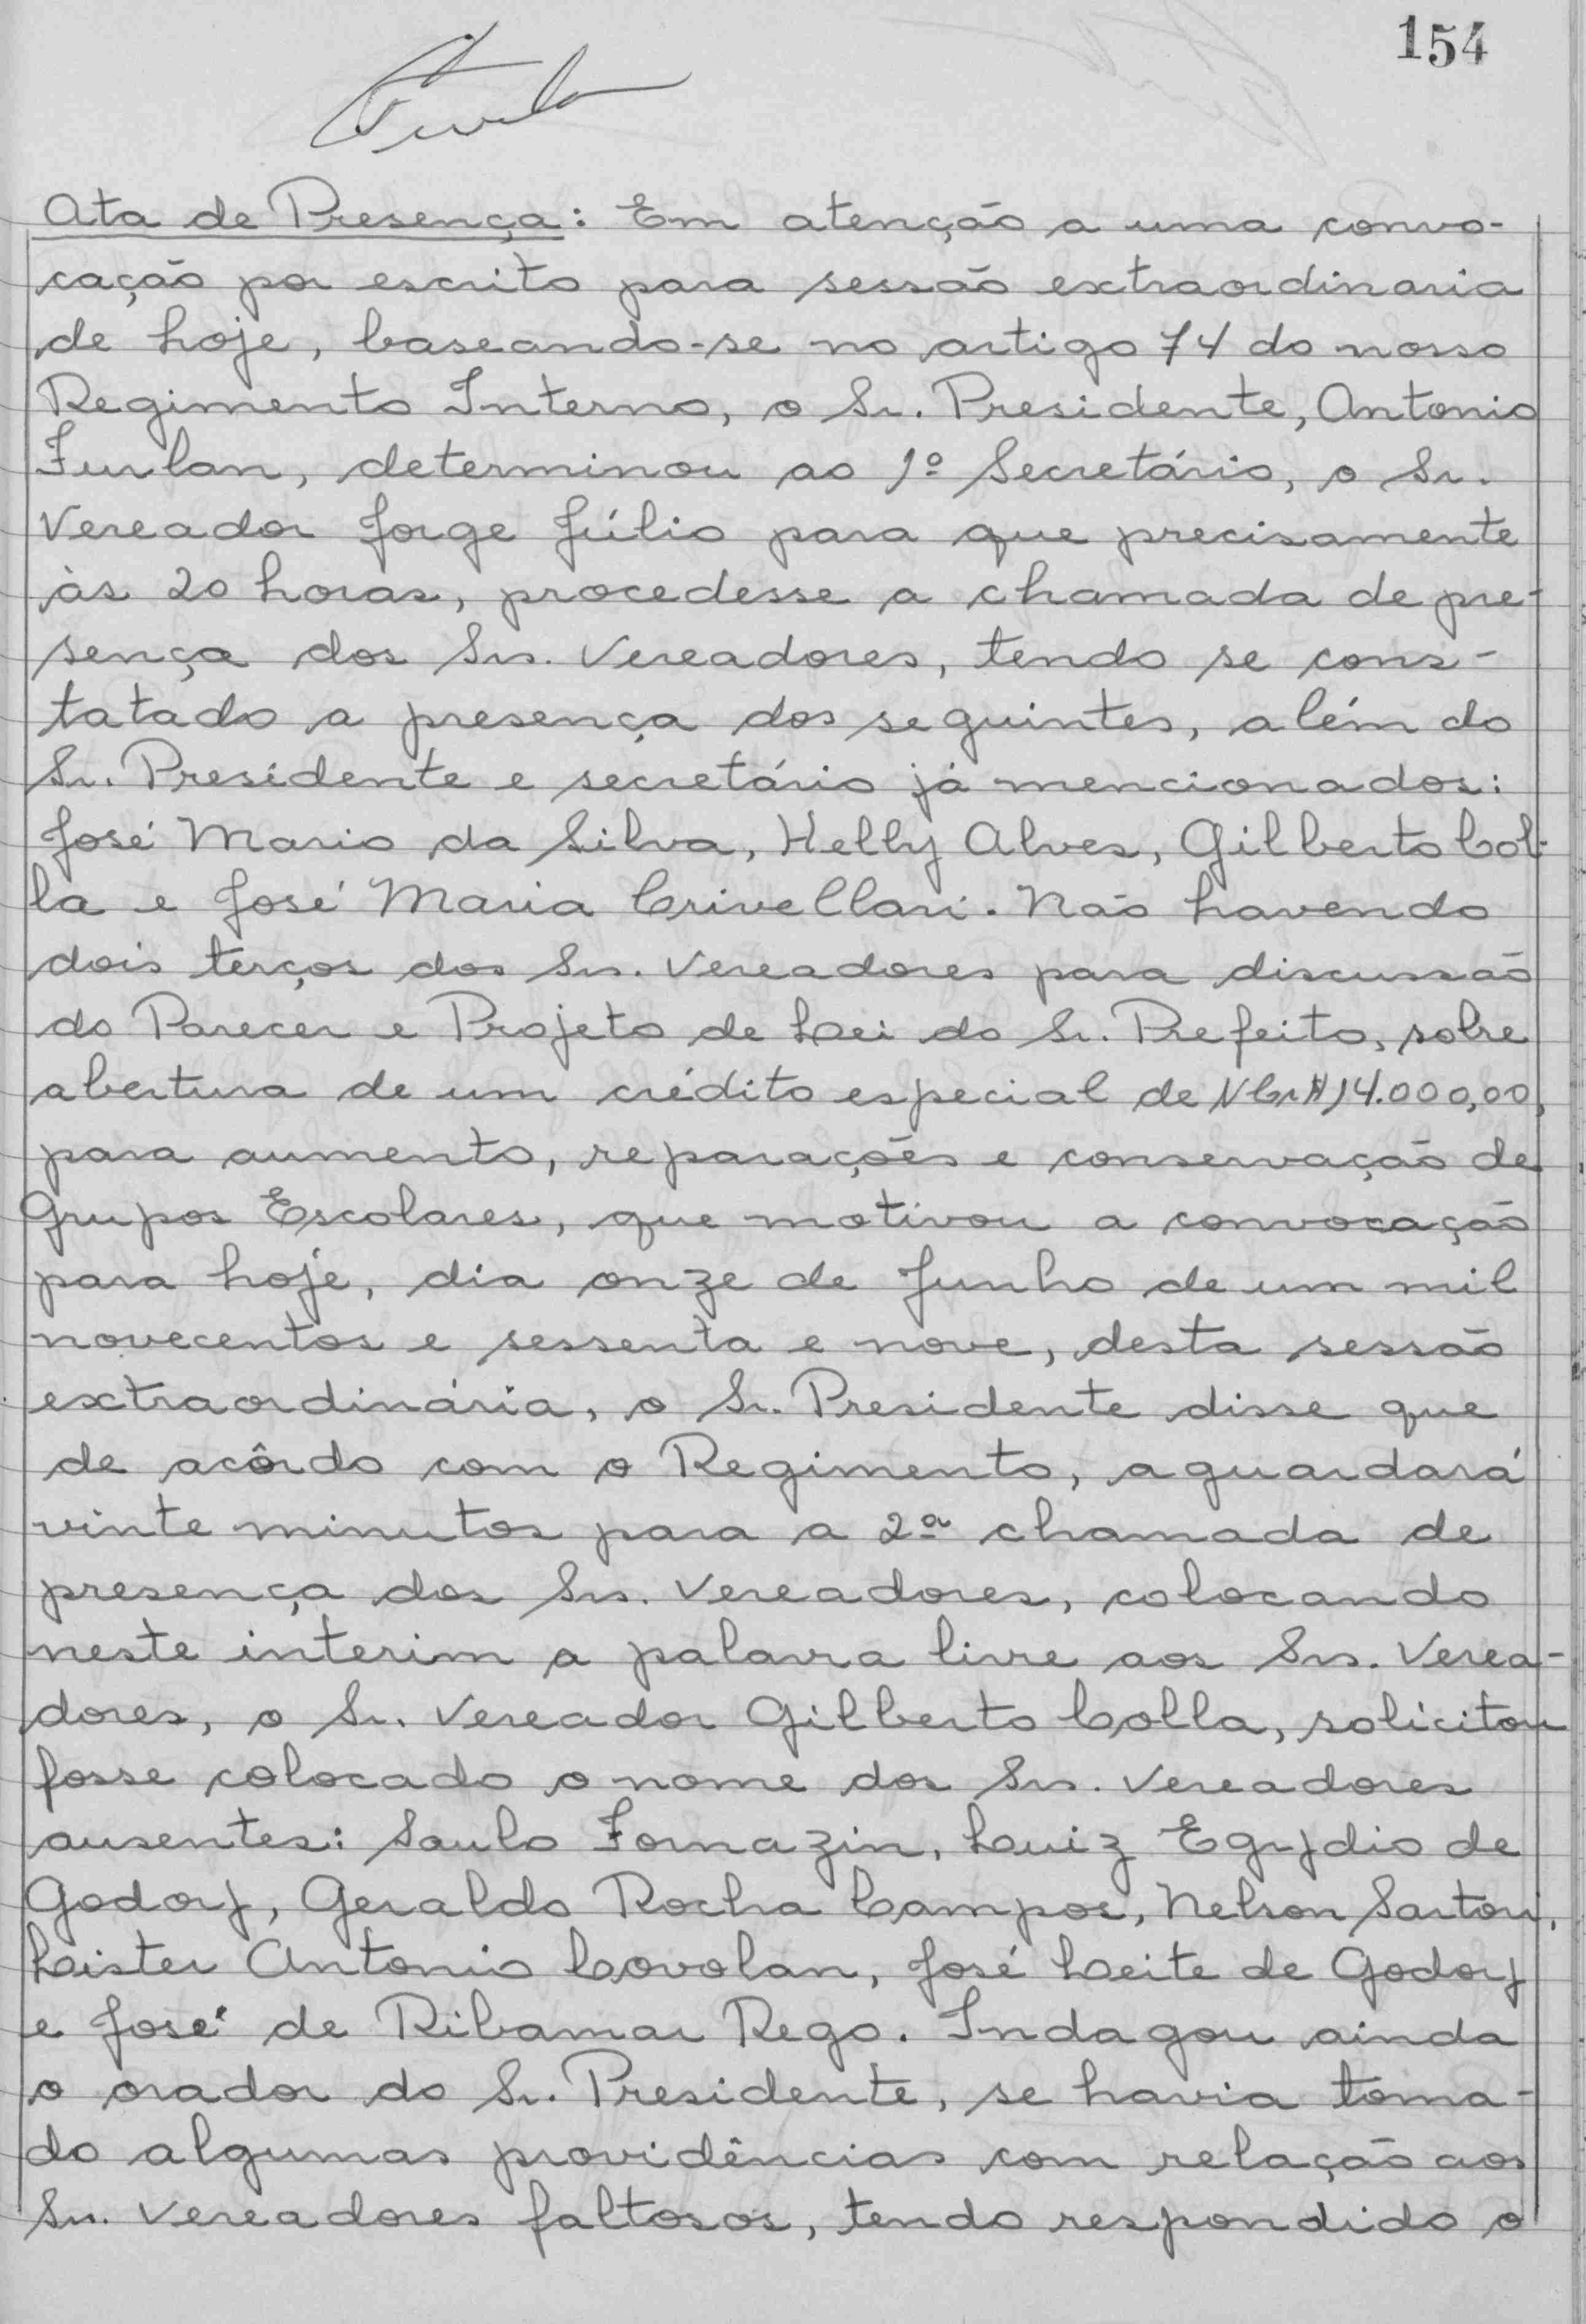 154
Ata de Presença: Em atenção a uma convo-
cação por escrito para sessão extraordinaria
de hoje, baseando-se no artigo 74 do nosso
Regimento Interno, o Sr. Presidente, Antonio
Furlan, determinou ao 1º Secretário, o Sr.
Vereador Jorge Júlio para que precisamente
às 20 horas, procedesse a chamada de pre-
sença dos Srs. Vereadores, tendo se cons-
tatado a presença dos seguintes, além do
Sr. Presidente e secretário já mencionados:
José Mario da Silva, Helly Alves, Gilberto Col-
la e José Maria Crivellari. Não havendo
dois terços dos Srs. Vereadores para discussão
do Parecer e Projeto de Lei do Sr. Prefeito, sobre
abertura de um crédito especial de NCr$ 14.000,00,
para aumento, reparações e conservação de
Grupos Escolares, que motivou a convocação
para hoje, dia onze de Junho de um mil
novecentos e sessenta e nove, desta sessão
extraordinária, o Sr. Presidente disse que
de acôrdo com o Regimento, aguardará
vinte minutos para a 2ª chamada de
presença dos Srs. Vereadores, colocando
neste interim a palavra livre aos Srs. Verea-
dores, o Sr. Vereador Gilberto Colla, solicitou
fosse colocado o nome dos Srs. Vereadores
ausentes: Saulo Fornazin, Luiz Egydio de
Godoy, Geraldo Rocha Campos, Nelson Sartori,
Leister Antonio Covolan, José Leite de Godoy
e José de Ribamar Rego. Indagou ainda
o orador do Sr. Presidente, se havia toma-
do algumas providências com relação aos
Srs. Vereadores faltosos, tendo respondido o